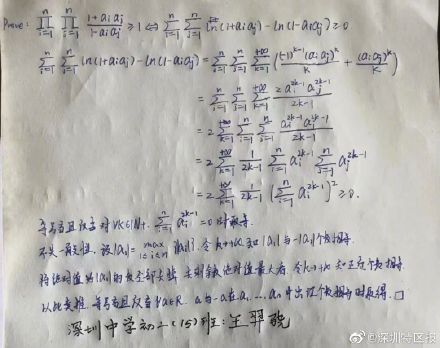 Prove: \prod_{i=1}^{n} \prod_{j=1}^{n} \frac{1+a_i a_j}{1-a_i a_j} ≥ 1 ⇔ \sum_{i=1}^{n} \sum_{j=1}^{n} ln(1+a_i a_j) - ln(1-a_i a_j) ≥ 0
\sum_{i=1}^{n} \sum_{j=1}^{n} ln(1+a_i a_j) - ln(1-a_i a_j) = \sum_{i=1}^{n} \sum_{j=1}^{n} \sum_{k=1}^{+∞} (\frac{(-1)^{k-1}(a_i a_j)^k}{k} + \frac{(a_i a_j)^k}{k})
= \sum_{i=1}^{n} \sum_{j=1}^{n} \sum_{k=1}^{+∞} \frac{2 a_i^{2k-1} a_j^{2k-1}}{2k-1}
= 2 \sum_{k=1}^{+∞} \sum_{i=1}^{n} \sum_{j=1}^{n} \frac{a_i^{2k-1} a_j^{2k-1}}{2k-1}
= 2 \sum_{k=1}^{+∞} \frac{1}{2k-1} \sum_{i=1}^{n} a_i^{2k-1} \sum_{j=1}^{n} a_j^{2k-1}
= 2 \sum_{k=1}^{+∞} \frac{1}{2k-1} (\sum_{i=1}^{n} a_i^{2k-1})^2 ≥ 0.
等号当且仅当对∀k∈N+, \sum_{i=1}^{n} a_i^{2k-1} = 0 时取等.
不失一般性, 设|a_1| = \max_{1≤i≤n} |a_i|. 令k→+∞ 知|a_1|与-|a_1|个数相等.
将绝对值为|a_1|的数全部去掉, 去剩余绝对值最大者, 令k→+∞ 知正负个数相等.
以此类推, 等号当且仅当∀a∈R, a与-a在a_1, … a_n中出现个数相等时取得. □
深圳中学初二(15)班: 王
@深圳特区报